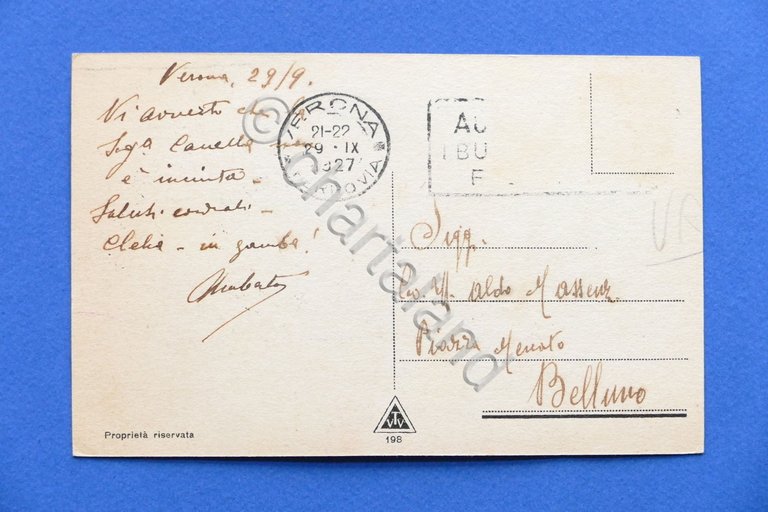 Verona, 29/9.
Vi avverto che la
Sig.a Canella non
è incinta -
Saluti cordiali -
Clelia - in gamba!
VERONA
21-22
29 · IX
1927
FERROVIA
AU
IBU
F
Sigg.
Aldo
Piazza Mercato
Belluno
VTV
198
Proprietà riservata
© chartaland